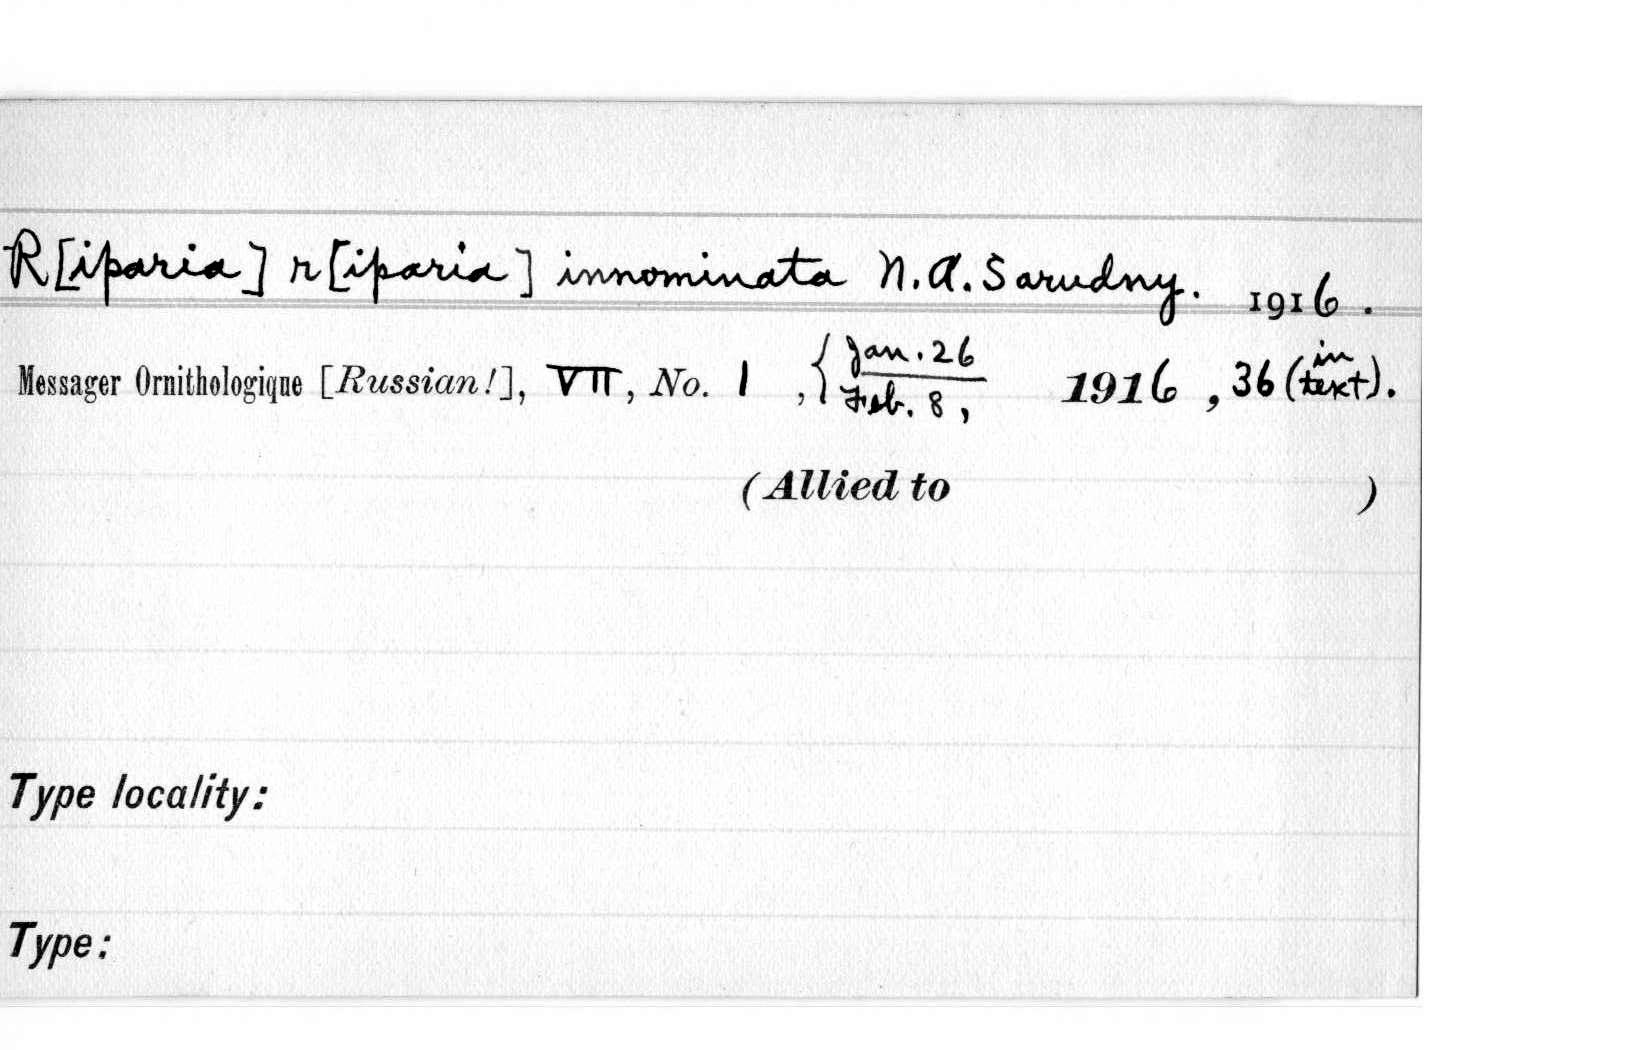 R[iparia] r[iparia] innominata N.A. Sarudny. 1916.
Messager Ornithologique [Russian!], VII, No. 1, { Jan. 26 / Feb. 8, 1916, 36 (in text).
(Allied to )
Type locality:
Type: